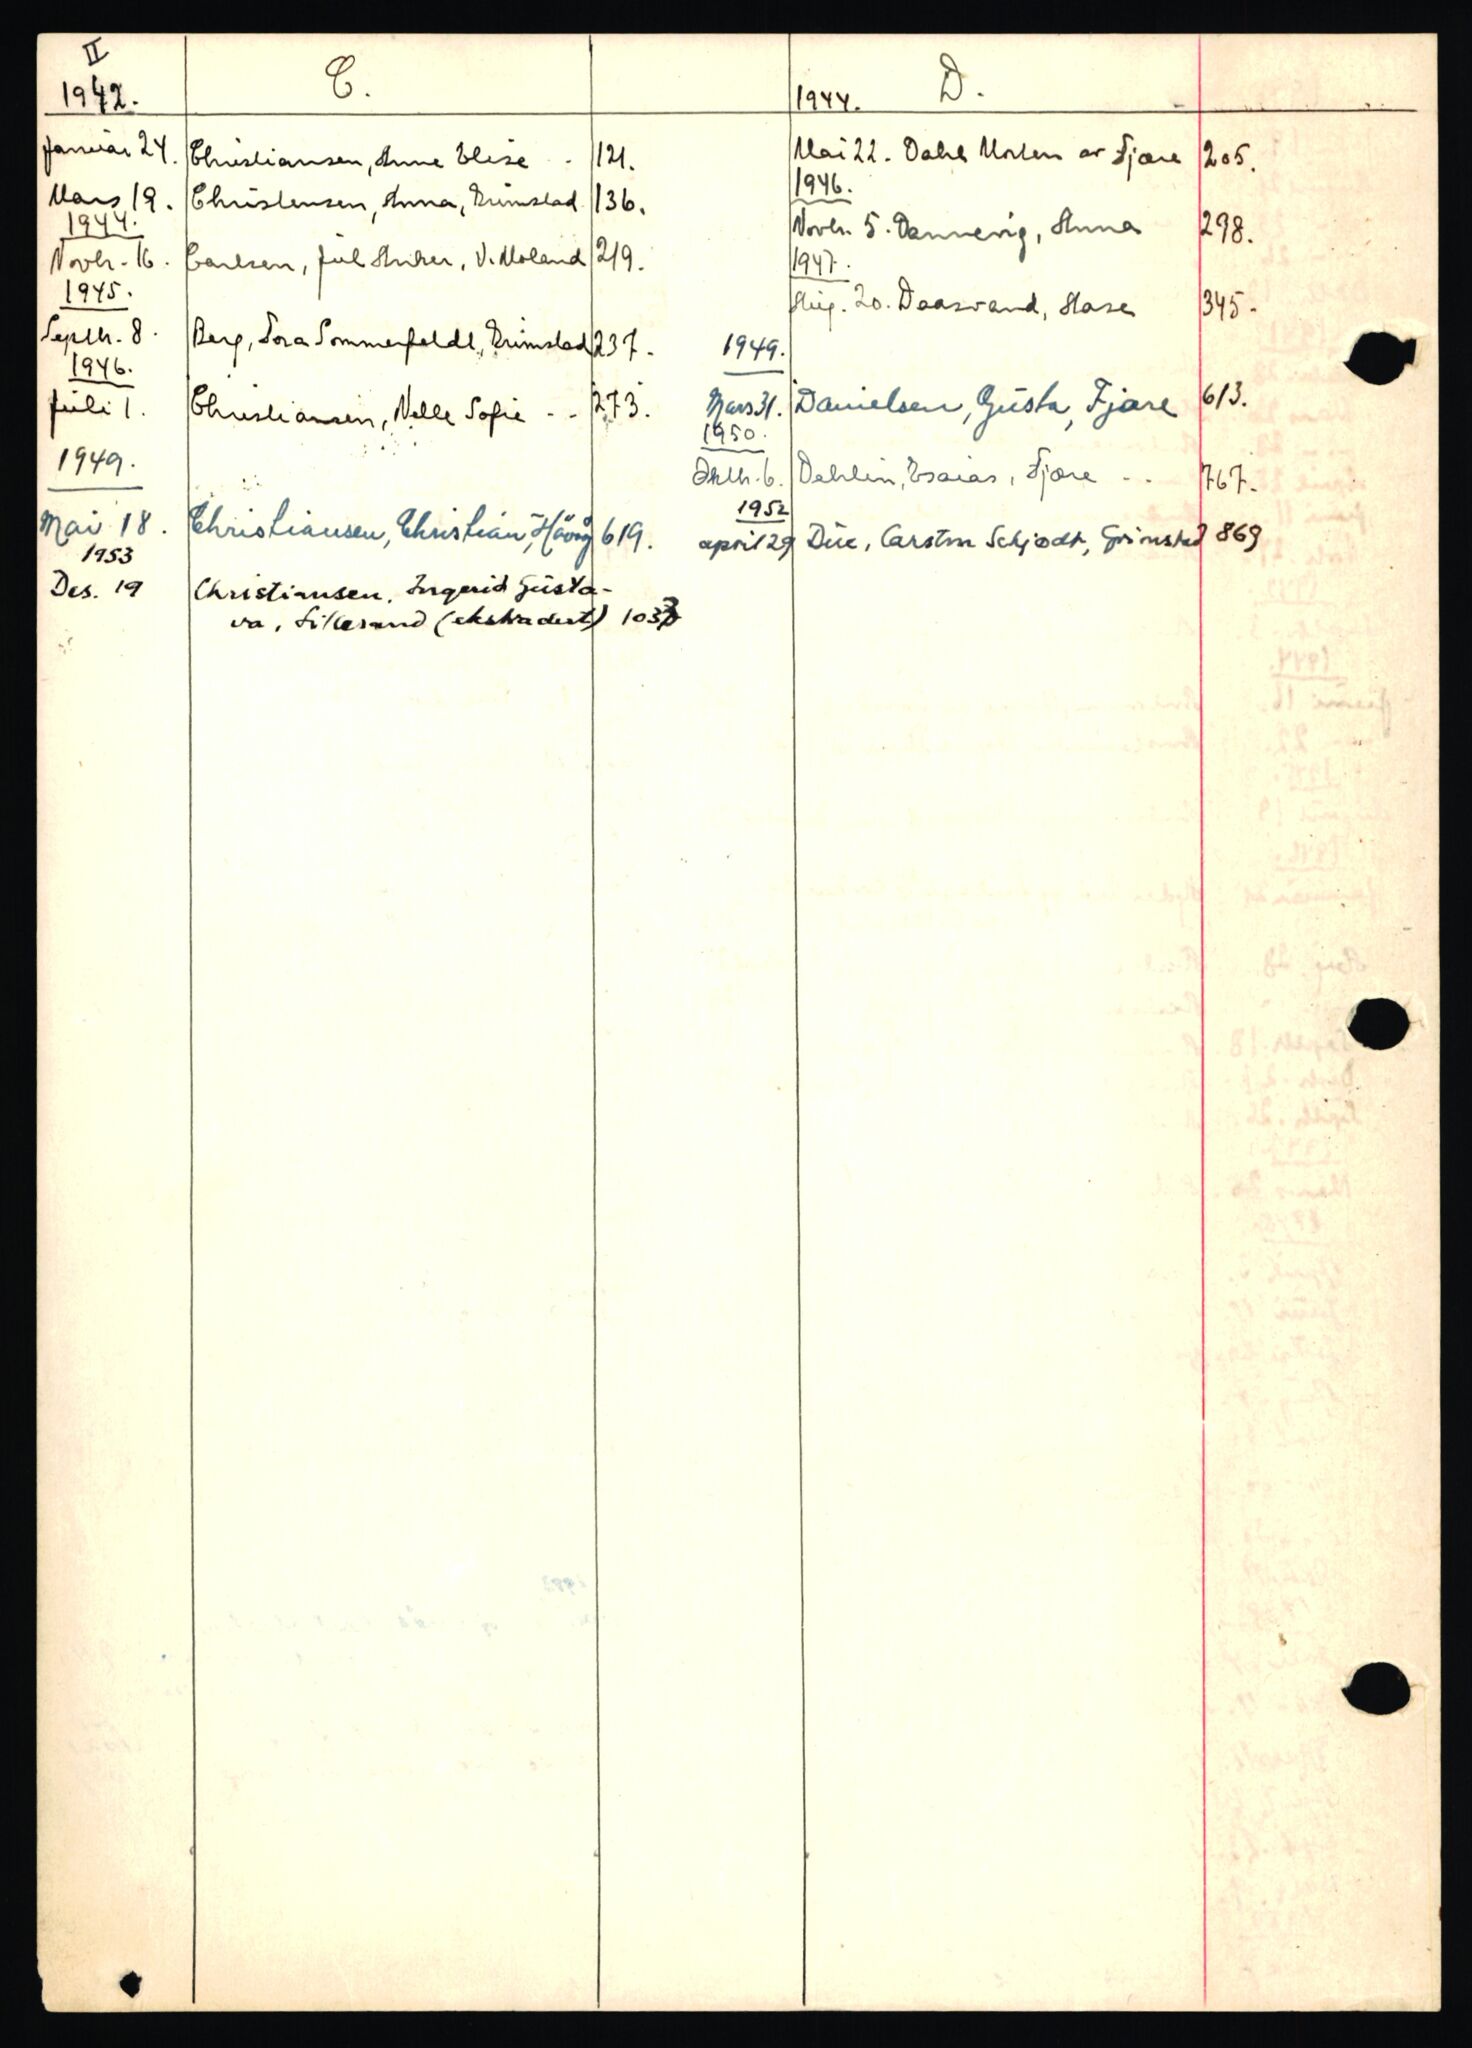 II
1942.
C.
Januar 24. Christiansen, Anne Elise - 121.
Mars 19. Christensen, Anna, Grimstad 136.
1944.
Novbr. 16. Carlsen, Jul Anker, V. Moland 219.
1945.
Septbr. 8. Berg, Tora Sommerfeldt, Grimstad 237.
1946.
Juli 1. Christiansen, Nelle Sofie - - 273.
1949.
Mai 18. Christiansen, Christian, Håvåg 619.
1953
Des. 19 Christiansen, Ingerid Gusta-
va, Lillesand (ekstradert)
1944. D.
Mai 22. Dahl Morten av Fjære 205.
1946.
Novbr. 5. Dannevig, Anna 298.
1947.
Aug. 20. Daasvand, Aase 345.
1949.
Mars 31. Danielsen, Gusta, Fjære 613.
1950.
Oktb. 6. Dahlin, Esaias, Fjære - - 767.
1952
april 29 Due, Carsten Schjødt, Grimstad 869